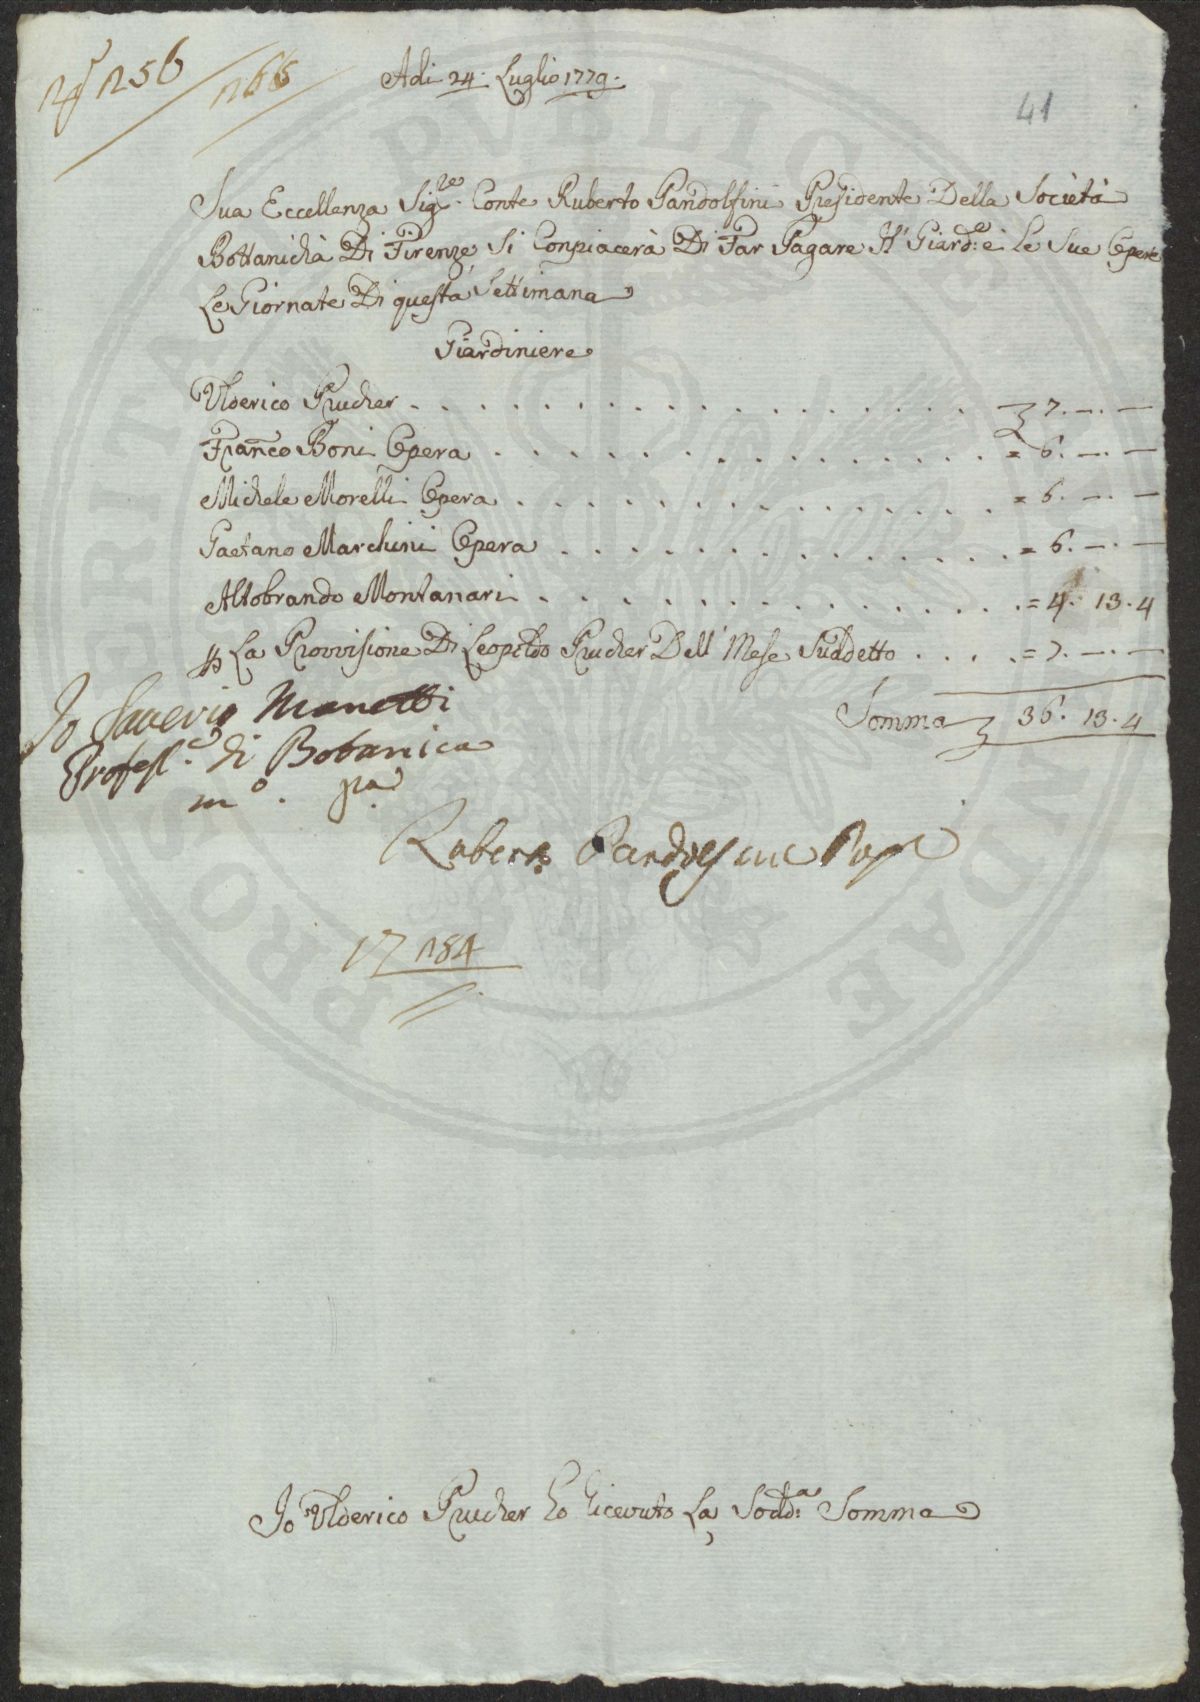 256
266
Adi 24. Luglio 1779.
41
Sua Eccellenza Sig.re Conte Ruberto Pandolfini Presidente Della Società
Bottanicha Di Firenze Si Conpiacerà Di Far Pagare Il Giard.e e Le Sue Opere
Le Giornate Di questa Settimana
Giardiniere
Ulderico Prucher . . . . . . . . . . . . . . . . 7. —. —
Franco Boni Opera . . . . . . . . . . . . . . = 6. —. —
Michele Morelli Opera . . . . . . . . . . . . . = 6. —. —
Gaetano Marchini Opera . . . . . . . . . . . . = 6. —. —
Altobrando Montanari . . . . . . . . . . . . . = 4. 13. 4
La Provvisione Di Leopoldo Prucher Dell' Mese Suddetto . . . . = 7. —. —
Somma 36. 13. 4
Io Saverio Manetti
Profess.e di Botanica
m.o pa
Ruberto Pandolfini
17 184
Io Ulderico Prucher ho ricevuto La Sodd.a Somma
PROSPERITATI PVBLICAE